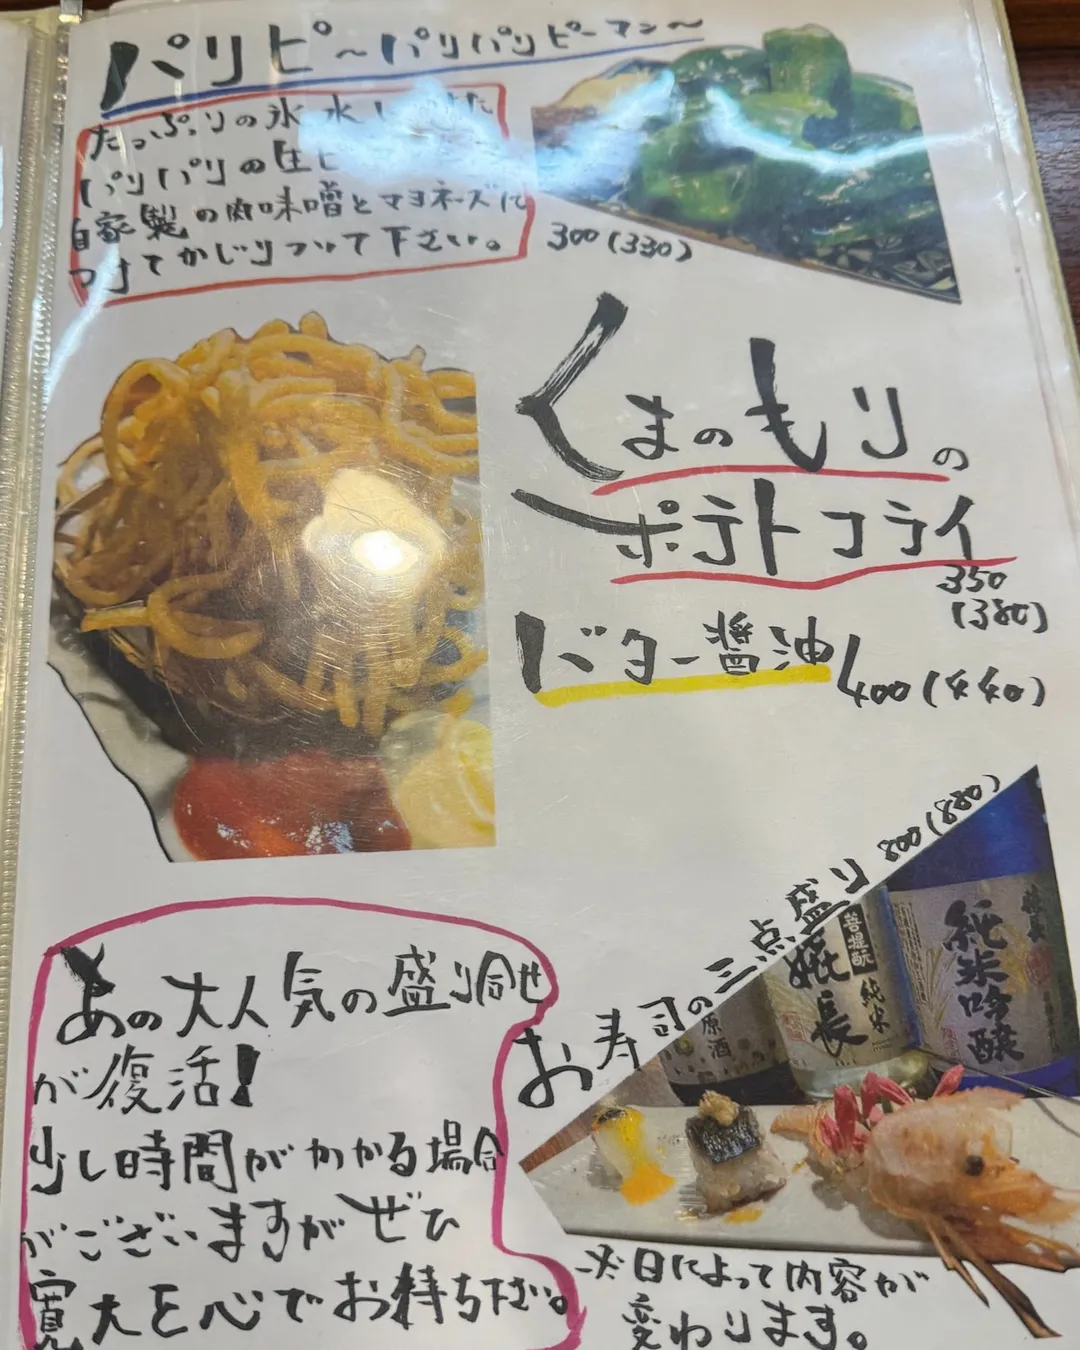 パリピ~パリパリピーマン~
たっぷりの氷水
パリパリの生ピ
自家製の肉味噌とマヨネーズに
つけてかじりついて下さい。
300(330)
くまのもりの
ポテトフライ
350
(380)
バター醤油 400(440)
お寿司の三点盛り 800(880)
原酒
菩提酛
純米
純米吟醸
あの大人気の盛り合せ
が復活!
少し時間がかかる場合
がございますがぜひ
寛大な心でお待ち下さい。
※日によって内容が
変わります。